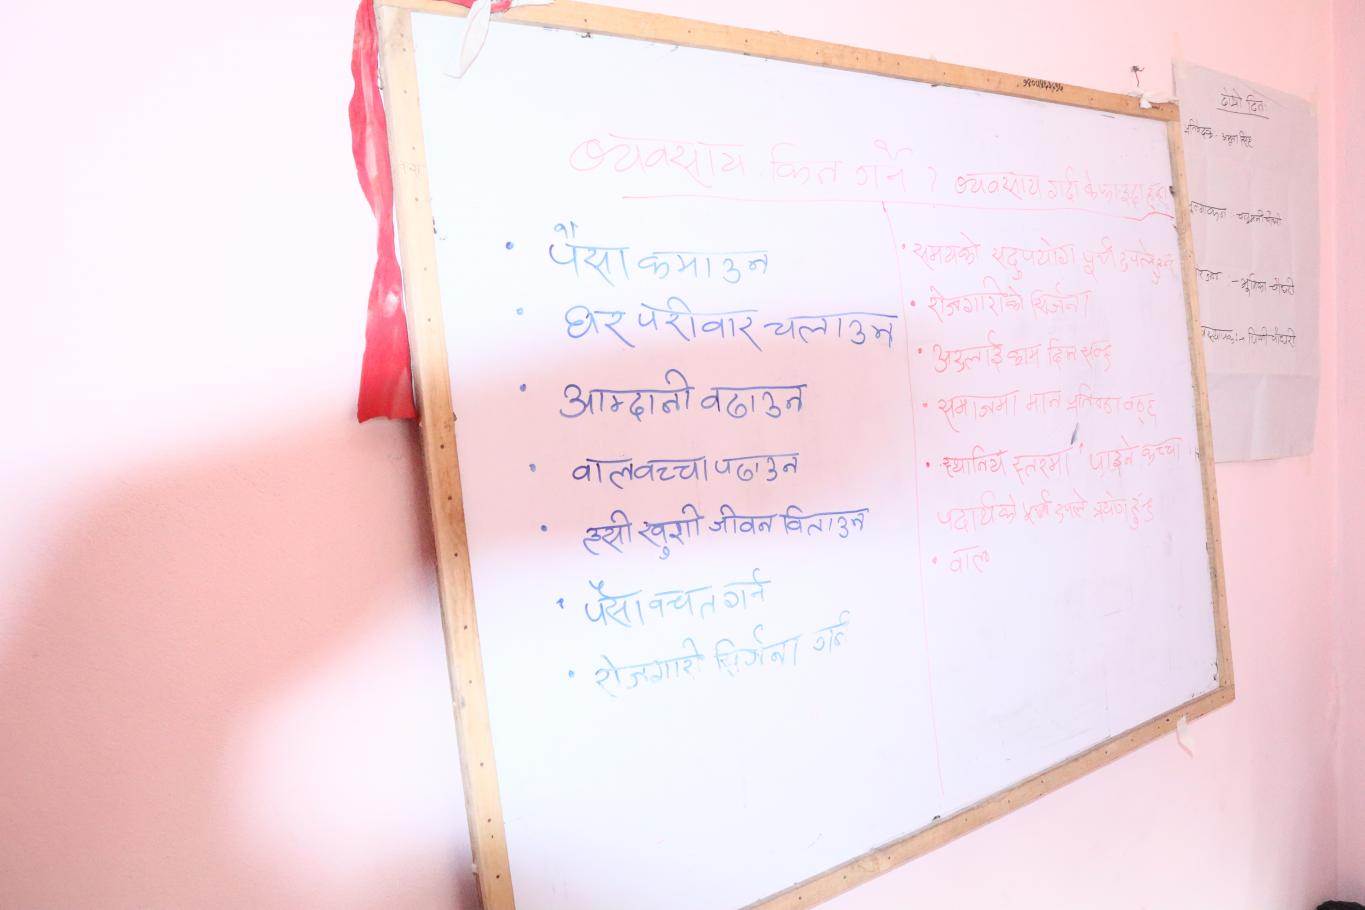 व्यवसाय किन गर्ने ?
व्यवसाय गर्दा के फाइदा हुन्छ
• पैसा कमाउन
• घर परीवार चलाउन
• आम्दानी वढाउन
• वालवच्चा पढाउन
• हसी खुशी जीवन विताउन
• पैसा वच्चत गर्न
• रोजगारी सिर्जना गर्न
• समयको सदुपयोग पूर्ण रुपले हुन्छ
• रोजगारीको सिर्जना
• अरुलाई काम दिन सकिन्छ
• समाजमा मान प्रतिष्ठा वढ्छ
• स्थानिय स्तरमा पाइने कच्चा
पदार्थको पूर्ण रुपले प्रयोग हुन्छ
• वाल
दोस्रो दिन